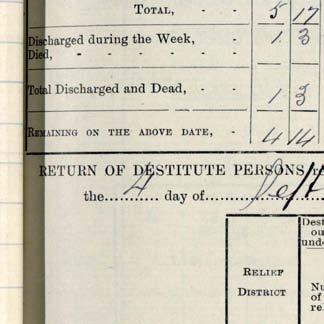 TOTAL, - - 5 17
Discharged during the Week, - 1 3
Died, - - - - - -
Total Discharged and Dead, - 1 3
REMAINING ON THE ABOVE DATE, - 4 14
RETURN OF DESTITUTE PERSONS re
the 4 day of Sept
RELIEF
DISTRICT
Dest
ou
unde
Nu
of
rel